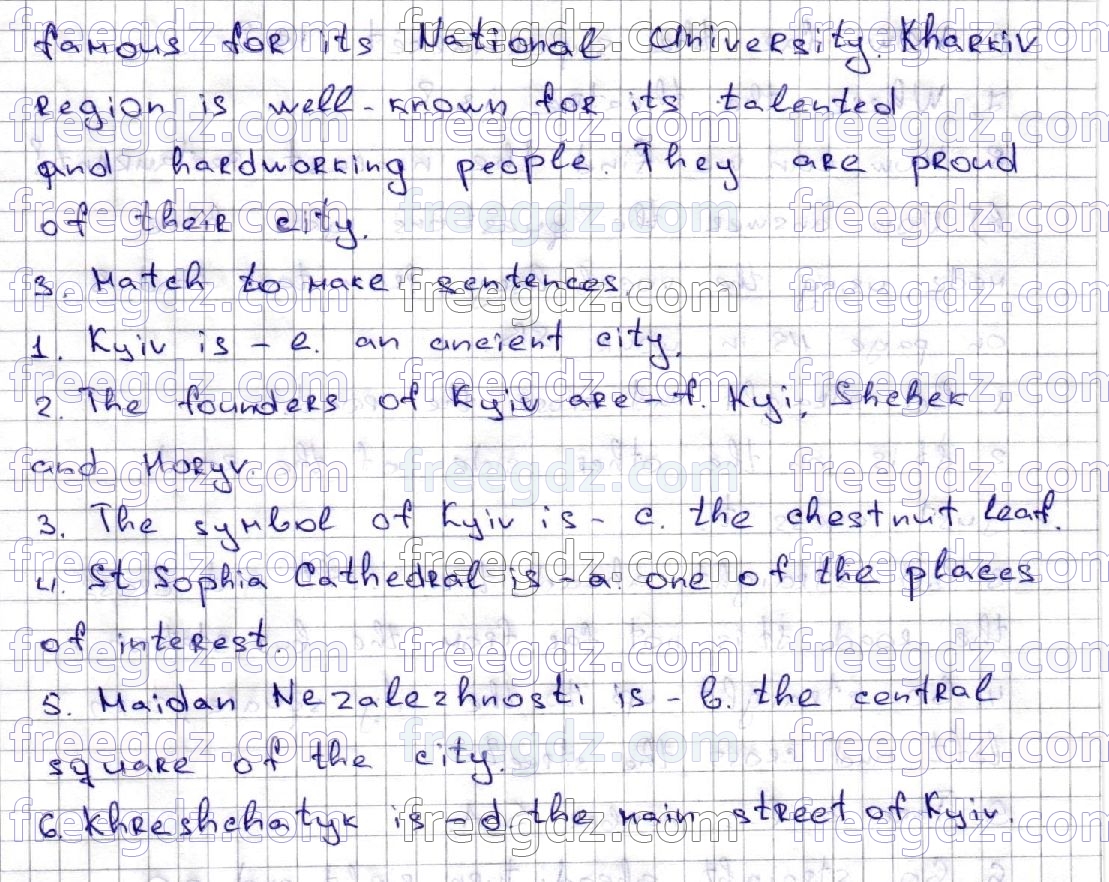 famous for its National University. Kharkiv
region is well-known for its talented
and hardworking people. They are proud
of their city.
3. Match to make sentences.
1. Kyiv is - e. an ancient city.
2. The founders of Kyiv are - f. Kyi, Shchek
and Horyv.
3. The symbol of Kyiv is - c. the chestnut leaf.
4. St Sophia Cathedral is - a. one of the places
of interest.
5. Maidan Nezalezhnosti is - b. the central
square of the city.
6. Khreshchatyk is - d. the main street of Kyiv.
freegdz.com